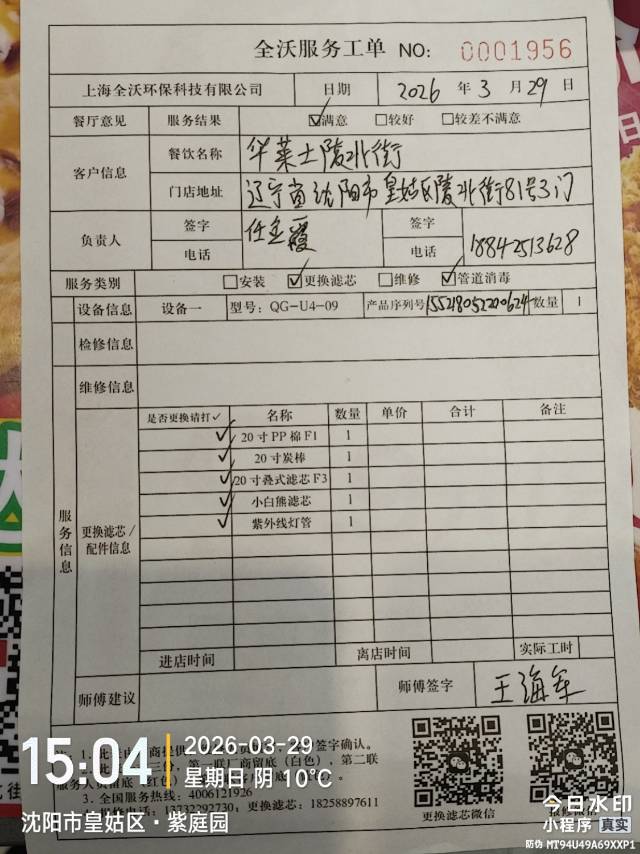 全沃服务工单 NO: 0001956
上海全沃环保科技有限公司 日期 2026 年 3 月 29 日
餐厅意见 服务结果 ☑满意 □较好 □较差不满意
客户信息 餐饮名称 华莱士陵北街
门店地址 辽宁省沈阳市皇姑区陵北街81号3门
负责人 签字 任金霞 签字
电话 电话 18842513628
服务类别 □安装 ☑更换滤芯 □维修 ☑管道消毒
设备信息 设备一 型号：QG-U4-09 产品序列号 155218052200624 数量 1
检修信息
维修信息
服务信息
更换滤芯/配件信息
是否更换请打✓ 名称 数量 单价 合计 备注
✓ 20寸PP棉F1 1
✓ 20寸炭棒 1
✓ 20寸叠式滤芯F3 1
✓ 小白熊滤芯 1
✓ 紫外线灯管 1
进店时间 离店时间 实际工时
师傅建议 师傅签字 王海军
签字确认。
三份，第一联厂商留底（白色），第二联
服务人员留底（红色）
3．全国服务热线：4006121926
电话：13732292730，更换滤芯：18258897611
更换滤芯微信 报修微信
15:04 2026-03-29
星期日 阴 10℃
沈阳市皇姑区·紫庭园
今日水印
小程序 真实
防伪 MT94U49A69XXP1